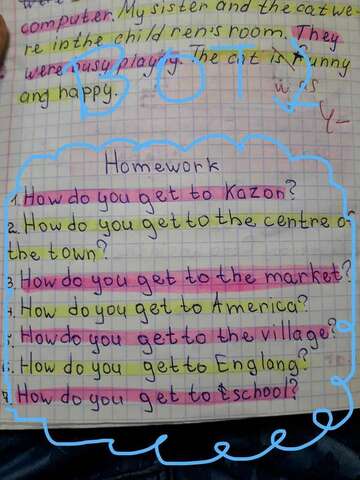 computer. My sister and the cat we-
re in the children's room. They
were busy playig. The cat is funny
ВОТ
was
ang happy.
4-
Homework
1. How do you get to Kazon?
2. How do you get to the centre of
the town?
3. How do you get to the market?
4. How do you get to America?
How do you get to the village?
How do you get to Englang?
How do you get to school?